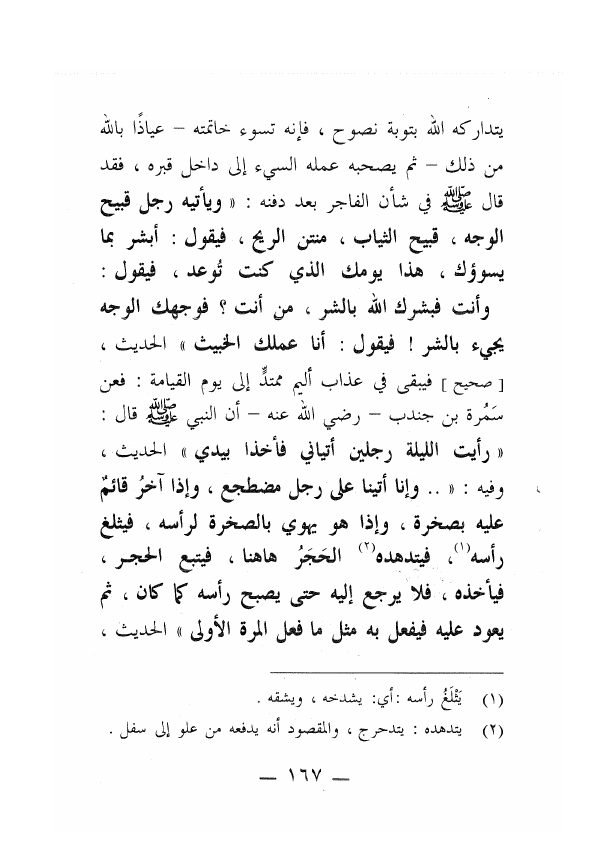 يتداركه الله بتوبة نصوح ، فإنه تسوء خاتمته – عياذًا بالله
من ذلك – ثم يصحبه عمله السيء إلى داخل قبره ، فقد
قال ﷺ في شأن الفاجر بعد دفنه : « ويأتيه رجل قبيح
الوجه ، قبيح الثياب ، منتن الريح ، فيقول : أبشر بما
يسوؤك ، هذا يومك الذي كنت تُوعد ، فيقول :
وأنت فبشرك الله بالشر ، من أنت ؟ فوجهك الوجه
يجيء بالشر ! فيقول : أنا عملك الخبيث » الحديث ،
[ صحيح ] فيبقى في عذاب أليم ممتدٍّ إلى يوم القيامة : فعن
سَمُرة بن جندب – رضي الله عنه – أن النبي ﷺ قال :
« رأيت الليلة رجلين أتياني فأخذا بيدي » الحديث ،
وفيه : « .. وإنا أتينا على رجل مضطجع ، وإذا آخرُ قائمٌ
عليه بصخرة ، وإذا هو يهوي بالصخرة لرأسه ، فيثلغ
رأسه(١)، فيتدهده(٢) الحَجَرُ هاهنا ، فيتبع الحجر ،
فيأخذه ، فلا يرجع إليه حتى يصبح رأسه كما كان ، ثم
يعود عليه فيفعل به مثل ما فعل المرة الأولى » الحديث ،
(١) يَثْلَغُ رأسه : أي: يشدخه ، ويشقه .
(٢) يتدهده : يتدحرج ، والمقصود أنه يدفعه من علو إلى سفل .
— ١٦٧ —